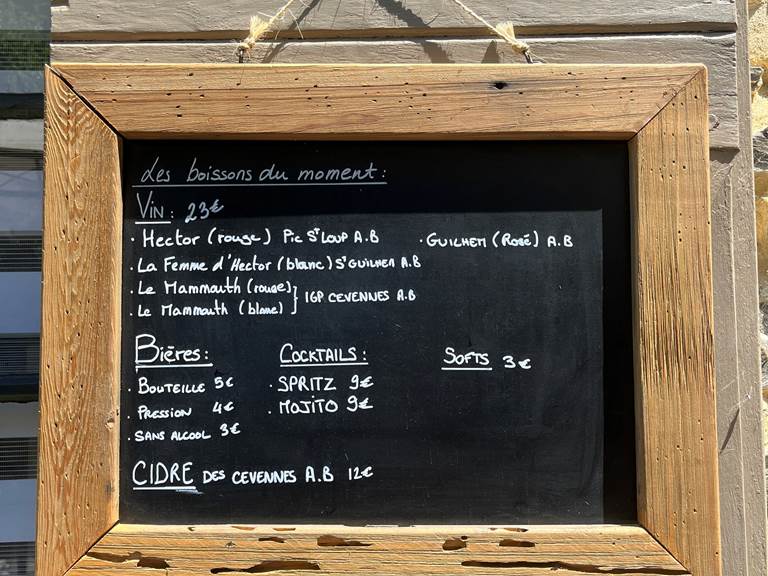 Les boissons du moment:
VIN: 23€
· Hector (rouge) Pic Sᵀ LOUP A.B · GUILHEM (Rosé) A.B
· La Femme d'Hector (blanc) Sᵀ GUILHEM A.B
· Le Mammouth (rouge)
· Le Mammouth (blanc) } IGP CEVENNES A.B
Bières: COCKTAILS: SOFTS 3€
· BOUTEILLE 5€ · SPRITZ 9€
· PRESSION 4€ · MOJITO 9€
· SANS ALCOOL 3€
CIDRE DES CEVENNES A.B 12€